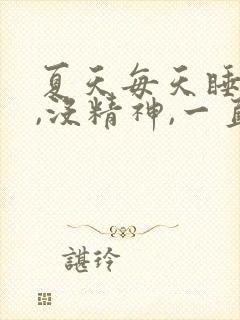 夏天每天睡
,没精神,一直
諶玲